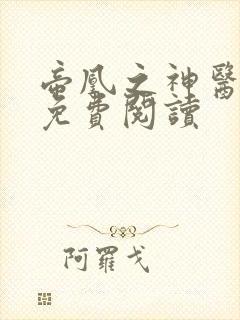 帝凰之神醫
免費閱讀
阿羅戈